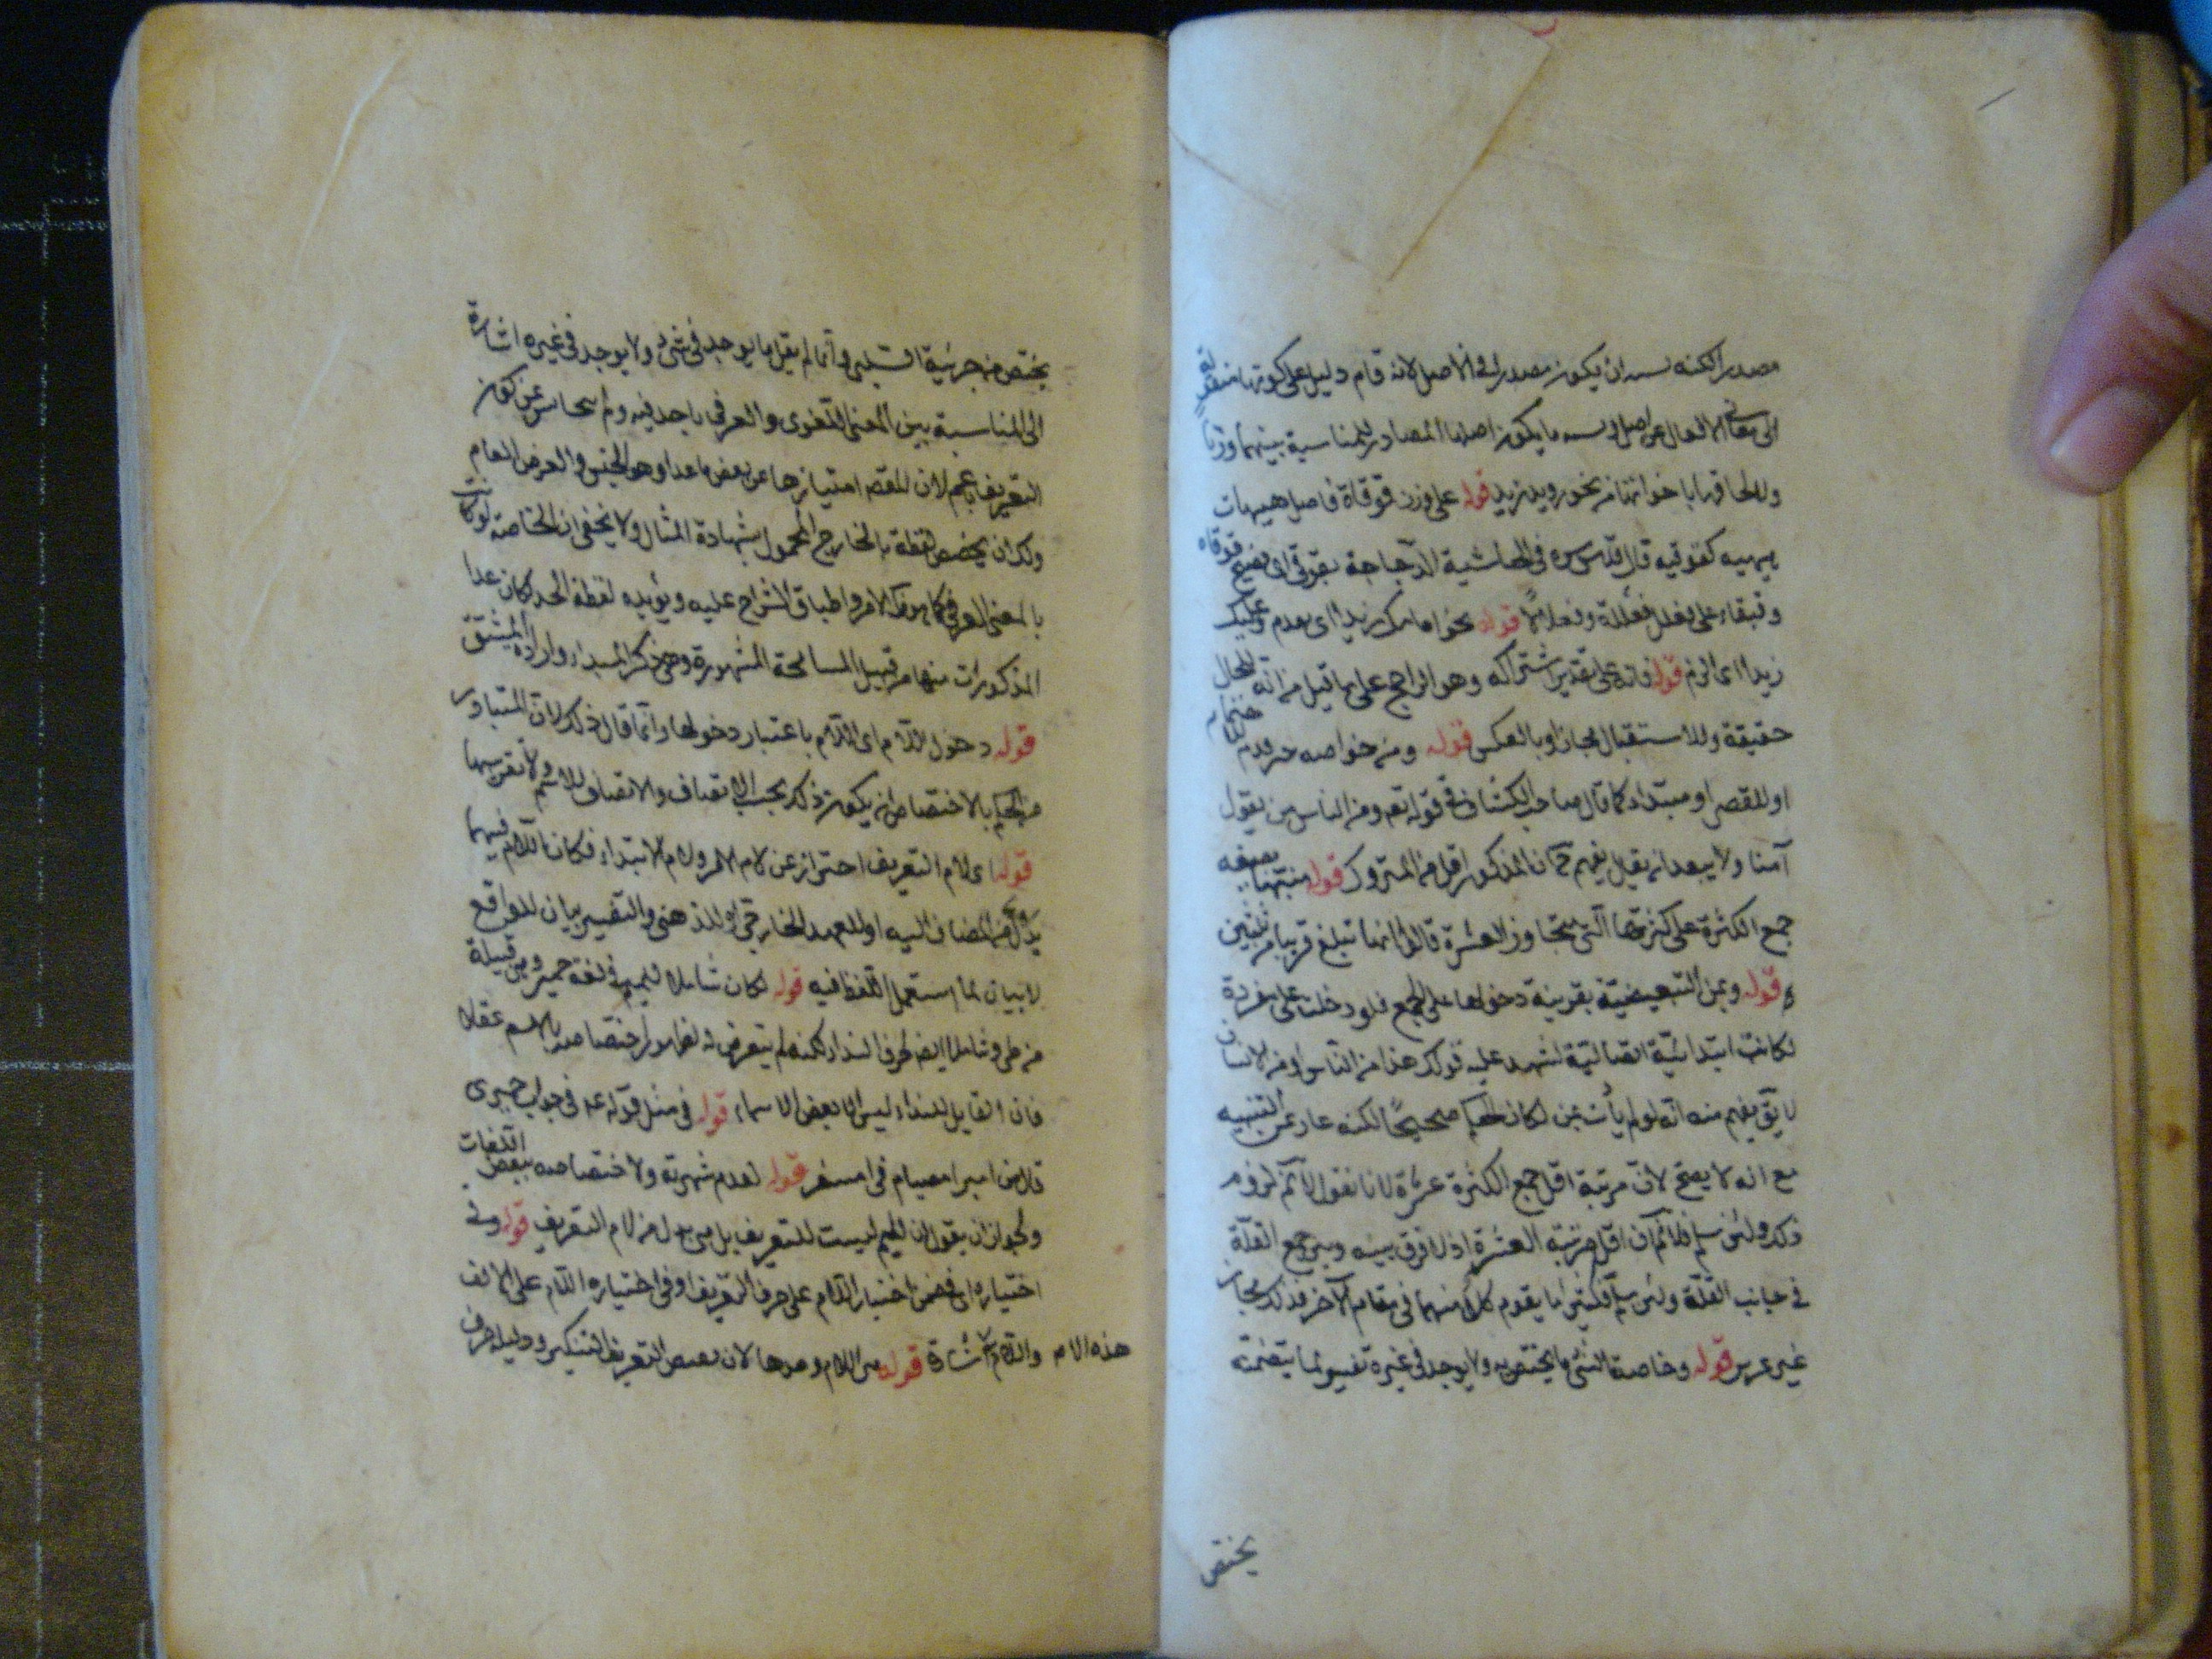 مصدرا لكنه يشبه ان يكون مصدرا فى الاصل لانه قام دليل على كونها منقولة
الى معانى الافعال عن اصل واشبه ما يكون اصلها المصادر للمناسبة بينهما وزنا
ولالحاقها باخواتها من نحو رويد زيد قوله على وزن قوقاة فاصل هيهات
هيهيه كقوقيه قال قدس سره فى الحاشية الدجاجة تقوقى اى تصيح قوقاه
وقيقاء على فعلل فعللة وفعلالا قوله نحو امامك زيدا اى تقدم وعليك
زيدا اى الزم قوله فانه على تقدير اشتراكه وهو الراجح على ما قيل من انه للحال
حقيقة وللاستقبال مجازا وبالعكس قوله ومن خواصه خبر قدم
او للقصر او مبتداء كما قال صاحب الكشاف فى قوله تعم ومن الناس من يقول
آمنا ولا يبعد ان يقال يفهم ح ان المذكور اقل من المتروك قوله منبها بصيغه
جمع الكثرة على كثرتها التى تتجاوز العشرة قالوا انها تبلغ قريبا من ثلثين
قوله وبمن التبعيضية بقرينة دخولها على الجمع فلو دخلت على مفردة
لكانت ابتدائية اتصالية تشهد عليه قولك هذا من الناس او من الانسان
لا يق يفهم منه انه لو لم يأت بمن لكان الحكم صحيحا لكنه عار عن التنبيه
مع انه لا يصح لان مرتبة اقل جمع الكثرة عشرة لانا نقول لا نم لزوم
ذلك ولئن سلم فلا نم ان اقل مرتبة العشرة اذ لا فرق بينه وبين جمع القلة
فى جانب القلة ولئن سلم فكثيرا ما يقوم كل منهما فى مقام الآخر فذلك مجاز
غير عزيز قوله وخاصة الشئ ما يختص به ولا يوجد فى غيره تفسير لما يتضمنه
يختص
يختص من جزئية السلبى وانما لم يقل ما يوجد فى شئ ولا يوجد فى غيره اشارة
الى المناسبة بين المعنى اللغوى والعرفى
التعريف اعم لان المقصد امتيازها عن بعض ما عدا وهو الجنس والعرض العام
ولك ان يخصص لفظة ما بالخارج المحمول بشهادة المثال ولا يخفى ان الخاصة لو كانت
بالمعنى العرفى كما هو واطباق الشراح عليه ويؤيده لفظة الحد لكان عد
المذكورات منها من قبيل المسامحة المشهورة وهى ذكر المبداء وارادة المشتق
قوله دخول اللام اى اللام باعتبار دخولها وانما قال ذلك لان المتبادر
من الحكم بالاختصاص ان يكون ذلك بحسب الاتصاف ولا اتصاف للاسم
قوله اى لام التعريف احتراز عن لام الامر ولام الابتداء فكان اللام فيها
بدل من المضاف اليه او للعهد الخارجى او الذهنى والتفسير بيان للواقع
لا بيان لما استعمل اللفظ فيه قوله لكان شاملا للميم فى لغة حمير وهى قبيلة
من طى وشاملا ايضا لحرف النداء لكنه لم يتعرض له لظهور اختصاصه بالاسم عقلا
فان القابل للنداء ليس الا بعض الاسماء قوله فى مثل قوله عم فى جواب حميرى
قال من امبر امصيام فى امسفر قوله لعدم شهرته ولاختصاصه ببعض اللغات
ويجوز ان يقول ان الميم ليست للتعريف بل هى بدل من لام التعريف قوله وفى
اختياره اى فى ضمن اختيار اللام على حرف التعريف او فى اختياره اللام على الالف
واللام اشارة قوله هى اللام وحدها لان نقيض التعريف التنكير ودليله حرف
هذه الام